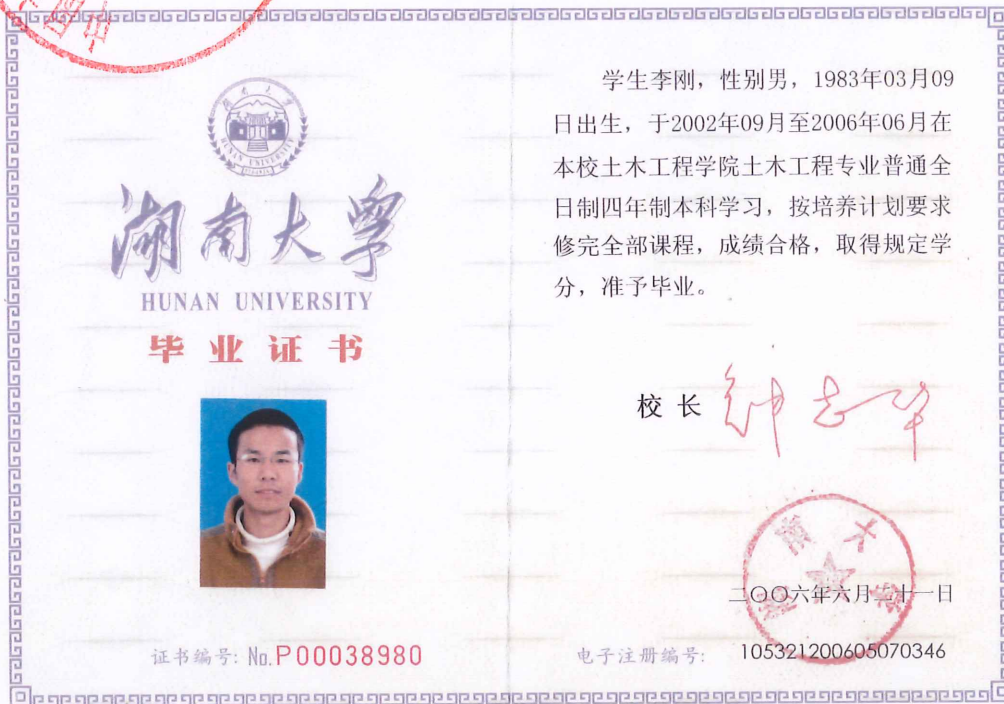 湖南大学
HUNAN UNIVERSITY
湖南大学
HUNAN UNIVERSITY
毕业证书
证书编号: No.P00038980
学生李刚，性别男，1983年03月09
日出生，于2002年09月至2006年06月在
本校土木工程学院土木工程专业普通全
日制四年制本科学习，按培养计划要求
修完全部课程，成绩合格，取得规定学
分，准予毕业。
校长 钟志华
湖南大学
二〇〇六年六月二十一日
电子注册编号: 105321200605070346